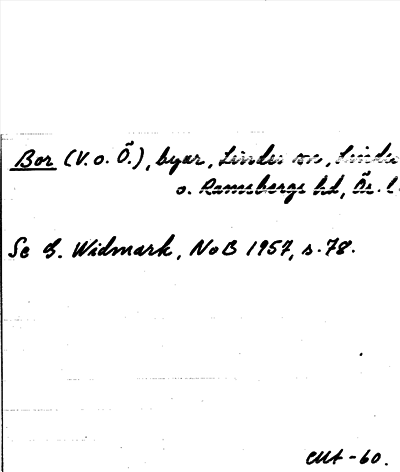 Bor (V. o. Ö.), byar, Lindes sn, Lindes
o. Ramsbergs hd, Ös. l.
Se G. Widmark, NoB 1957, s. 78.
-60.